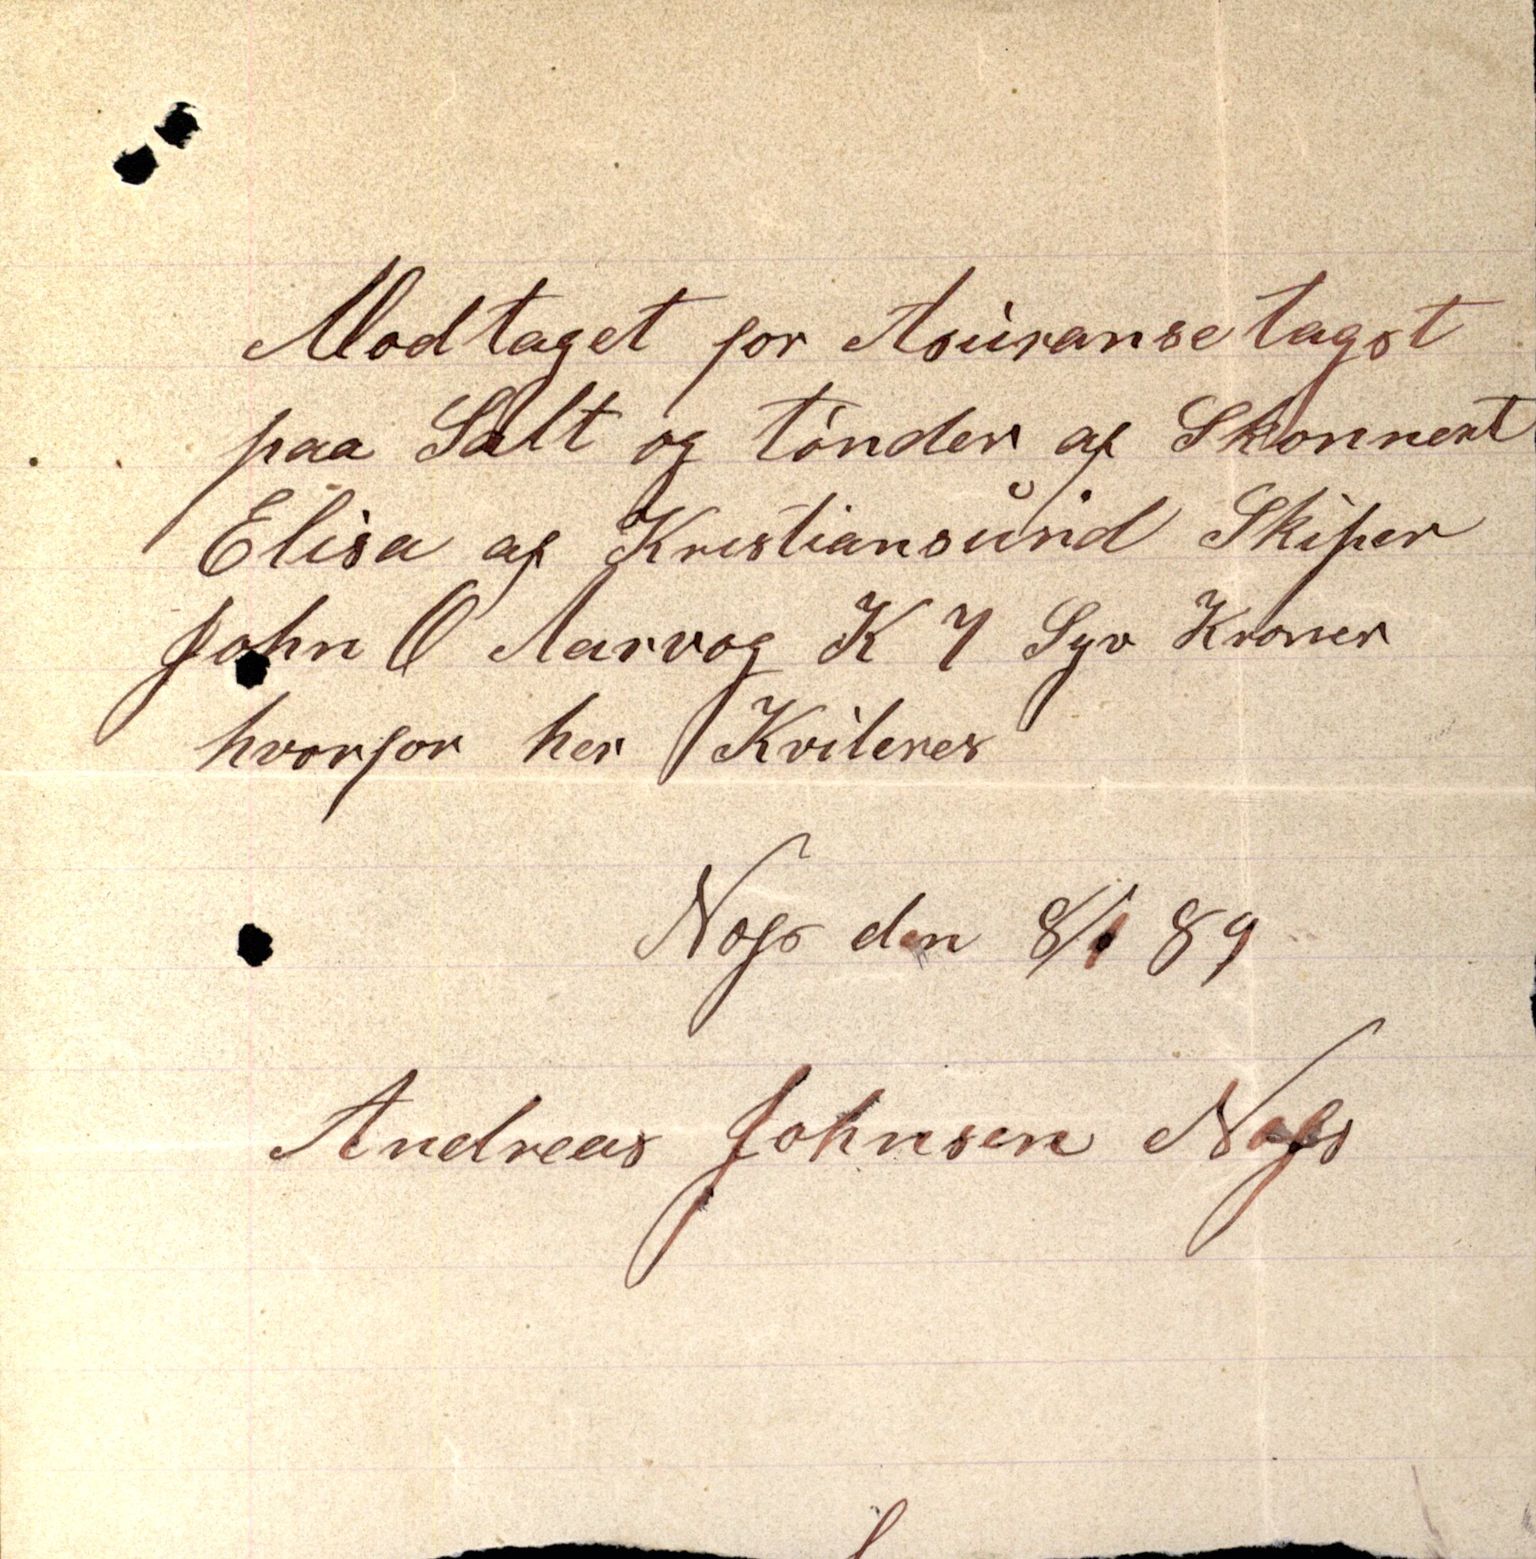 Modtaget for Asuranse tagst
paa Salt og tönder af Skonnert
Elisa af Kristiansund Skiper
John O Aarvog K 7 Syv Kroner
hvorfor her Kviteres
den 8/1 89
Andreas Johnsen